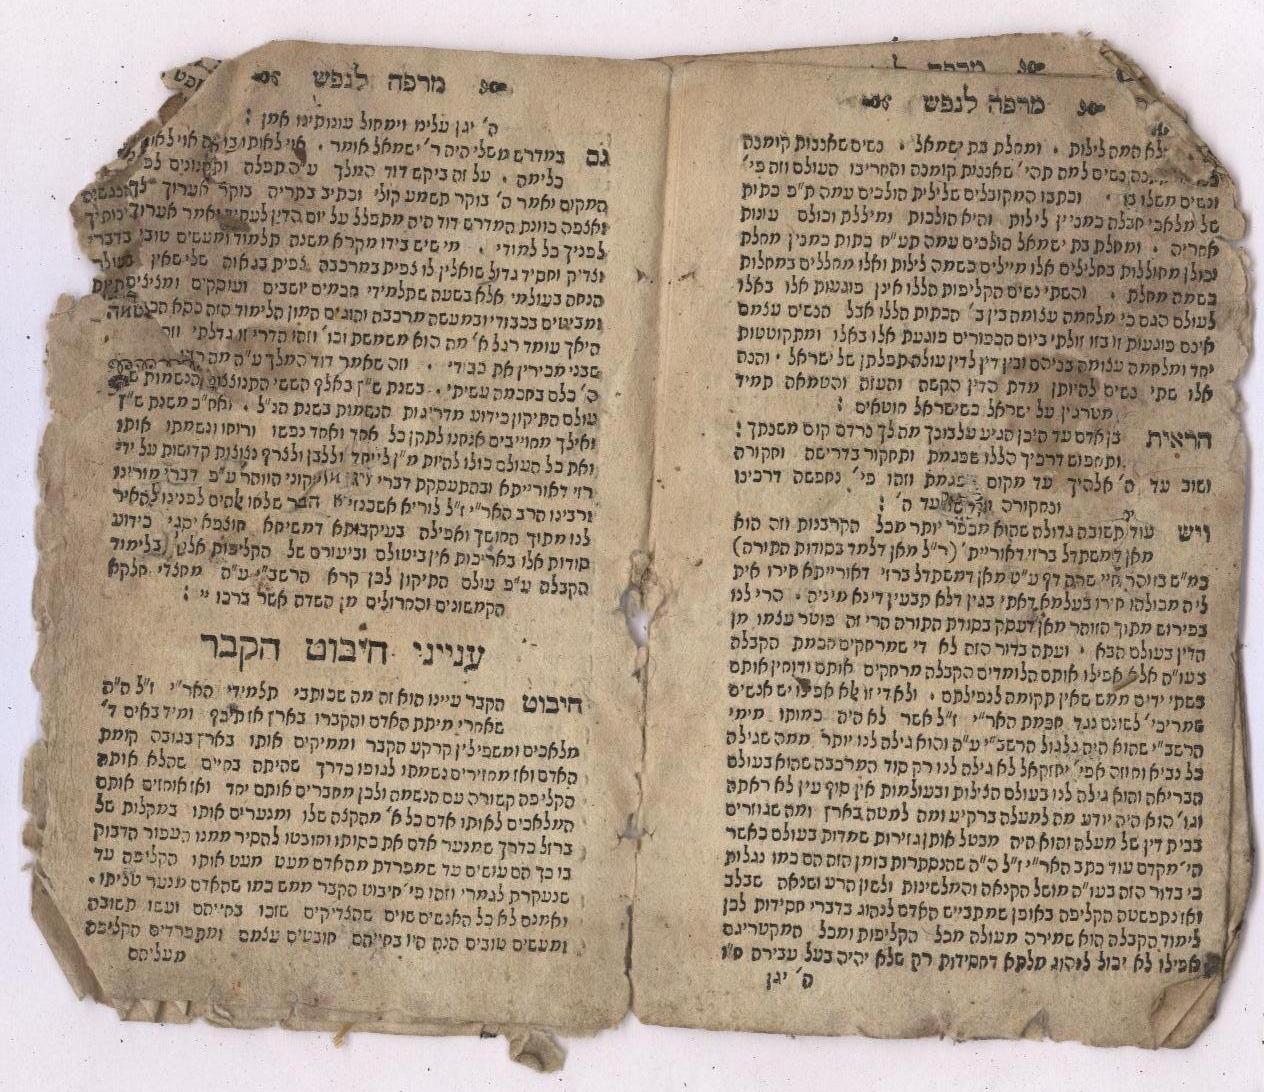 מרפה לנפש
לא המה לילות . ומחלת בת ישמאל . נשים שאננות קומנה
נשים למה תהי׳ שאננות קומנה והחריבו העולם וזה פי׳
ונשים משלו בו . וכתבו המקובלים שלילית הולכים עמה ת״פ כתות
של מלאכי חבלה כמניין לילות והיא הולכות ומיללת וכולם עונות
אחריה . ומחלת בת ישמאל הולכים עמה תע״ח כתות כמנין מחלת
וכולן מחוללות בחלילים אלו מיילים בשמה לילות ואלו מחללים במחלות
בשמה מחלת . והשתי נשים הקליפות הללו אינן פוגעות אלו באלו
לעולם הגם כי מלחמה עצומה בין ב׳ הכתות הללו אבל הנשים עצמם
אינם פוגעות זו בזו זולתי ביום הכפורים פוגעת אלו באלו ומתקוטטות
יחד ומלחמה עצומה בניהם ובין דין לדין עולה תפלתן של ישראל . והנה
אלו שתי נשים להיותן מדת הדין הקשה והעזה והטמאה תמיד
מטרגין על ישראל כשישראל חוטאים :
הראית בן אדם עד היכן הגיע עלבונך מה לך נרדם קום משנתך :
ותחפוש דרכיך הללו שפגמת ותחקור בדרישה וחקורה
ושוב עד ה׳ אלהיך עד מקום שפגמת וזהו פי׳ נחפשה דרכינו
ונחקורה ונשובה עד ה׳ :
ויש עוד תשובה גדולה שהוא מכפר יותר מכל הקרבנות וזה הוא
מאן דמשתדל ברזי דאוריית׳ (ר״ל מאן דלמד בסודות התורה)
כמ״ש בזוהר חיי שרה דף ע״ט מאן דמשתדל ברזי דאורייתא חירו אית
ליה מכולהו חירו בעלמא דאתי בגין דלא תבעין דינא מיניה . הרי לנו
בפירוש מתוך הזוהר מאן דעסק בסודת התורה הרי זה פוטר עצמו מן
הדין בעולם הבא . ועתה בדור הזה לא די שמרחקים חכמת הקבלה
בעו״ה אלא אפילו אותם הלומדים הקבלה מרחקים אותם ודוחין אותם
בשתי ידים ממש שאין תקומה לנפילתם . ולא די זו לא אפילו יש אנשים
שמריבי׳ לשונם נגד חכמת האר״י ז״ל אשר לא היה כמותו מימי
הרשב״י שהוא היה גלגול הרשב״י ע״ה והוא גילה לנו יותר ממה שגילה
כל נביא וחוזה אפי׳ יחזקאל לא גילה לנו רק סוד המרכבה שהוא בעולם
הבריאה והוא גילה לנו בעולם הצילות ובעולמות אין סוף עין לא ראתה
וגו׳ הוא היה יודע מה למעלה ברקיע ומה למטה בארץ ומה שגוזרים
בבית דין של מעלה והוא היה מבטל אותן גזירות שמדות בעולם כאשר
הי׳ מקדם עוד כתב האר״י ז״ל ה״ה שהנסתרות בזמן הזה הם כמו נגלות
כי בדור הזה בעו״ה מושל הקנאה והמלשינות ולשון הרע ושנאה שבלב
ואז נתפשטה הקליפה באופן שמתבייש האדם לנהוג בדברי חסידות לכן
לימוד הקבלה הוא שמירה מעולה מכל הקליפות ומכל המקטריגם
אפילו לא יכול לנהוג מלתא דחסידות רק שלא יהיה בעל עבירה ח״ו
ה׳ יגן
מרפה לנפש
ה׳ יגן עלינו וימחול עונותינו אמן :
גם במדרש משלי היה ר׳ ישמאל אומר . אוי לאותו בושה אוי לאותו
כלימה . על זה ביקש דוד המלך ע״ה תפלה ותחנונים לפני
המקום ואמר ה׳ בוקר תשמע קולי וכתיב בתריה בוקר אערוך לך
ואצפה כוונת המדרש דוד היה מתפלל על יום הדין לעתיד ואמר אערוך זכותיך
לפניך כל למודי . מי שיש בידו מקרא משנה תלמוד ומעשים טובי בדברי
צדיק וחסיד גדול שואלין לו צפית במרכבה צפית בגאוה שלי שאין בעולם
הנחה בעולמי אלא בשעה שתלמידי חכמים יושבים ועוסקים ומצילים
ומביטים בכבודי ובמעשה מרכבה והוגים המון הלימוד הזה כסא
היאך עומד רגל א׳ מה הוא משמשת וכו׳ וזהו הדרי זו גדלתי וזה
שבני מכירין את כבודי . וזה שאמר דוד המלך ע״ה מה רבו
ה׳ כלם בחכמה עשית׳ . בשנת ש״ן באלף הששי התנוצצו הנשמות
עולם התיקון כידוע מדריגות הנשמות בשנת הנ״ל . ואח״כ משנת ש״ן
ואילך מחוייבים אנחנו לתקן כל אחד ואחד נפשו ורוחו ונשמתו אותו
ואת כל העולם כולו להיות מ״ן לייחד וללבן ולצרף נצוצות קדושות על ידי
רזי דאורייתא ובהתעסקת דברי תיקוני הזוהר ע״פ דברי מורינו
ורבינו הרב האר״י ז״ל לוריא אשכנזי הבר שלחו אלהים לפנינו להאיר
לנו מתוך החושך ואפילה בעיקבותא דמשיחא חוצפא יסגי כידוע
סודות אלו באריכות אין ביטולם וביעורם של הקליפות אלו (בלימוד
הקבלה ע״פ עולם התיקון לכן קרא הרשב״י ע״ה מחצדי חלקא
הקמשונים והחרולים מן השדה אשר ברכו י״י :
ענייני חיבוט הקבר
חיבוט הקבר עיינו הוא זה מה שכותבי תלמידי האר״י ז״ל ה״ה
שאחרי מיתת האדם והקברו בארץ אז תיכף ומיד באים ד׳
מלאכים ומשפילין קרקע הקבר ומעמיקים אותו בארץ בגובה קומת
האדם ואז מחזירים נשמתו לגופו כדרך שהיתה בחיים שהלא אותה
הקליפה קשורה עם הנשמה ולכן מחברים אותם יחד ואז אוחזים אותם
המלאכים לאותו אדם כל א׳ מהקצה שלו ומנערים אותו במקלות של
ברזל כדרך שמנער אדם את כסותו וחובטו להסיר ממנו העפור הדבוק
בו כך הם עושים עד שמפרדת מהאדם מעט מעט אותו הקליפה עד
שנעקרת לגמרי וזהו פי׳ חיבוט הקבר ממש כמו שהאדם מנער טליתו .
ואמנם לא כל האנשים שוים שהצדיקים שזכו בחייהם ועשו תשובה
ומעשים טובים הנה היו בחייהם חובטים עצמם ומתפרדים הקליפה
מעליהם